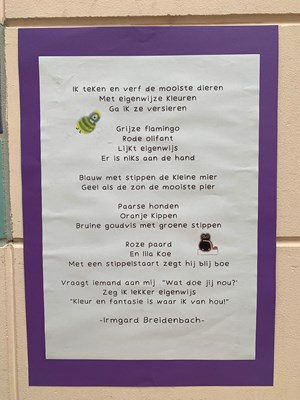 Ik teken en verf de mooiste dieren
Met eigenwijze kleuren
Ga ik ze versieren
Grijze flamingo
Rode olifant
Lijkt eigenwijs
Er is niks aan de hand
Blauw met stippen de kleine mier
Geel als de zon de mooiste pier
Paarse honden
Oranje kippen
Bruine goudvis met groene stippen
Roze paard
En lila koe
Met een stippelstaart zegt hij blij boe
Vraagt iemand aan mij "Wat doe jij nou?'
Zeg ik lekker eigenwijs
"Kleur en fantasie is waar ik van hou!"
-Irmgard Breidenbach-